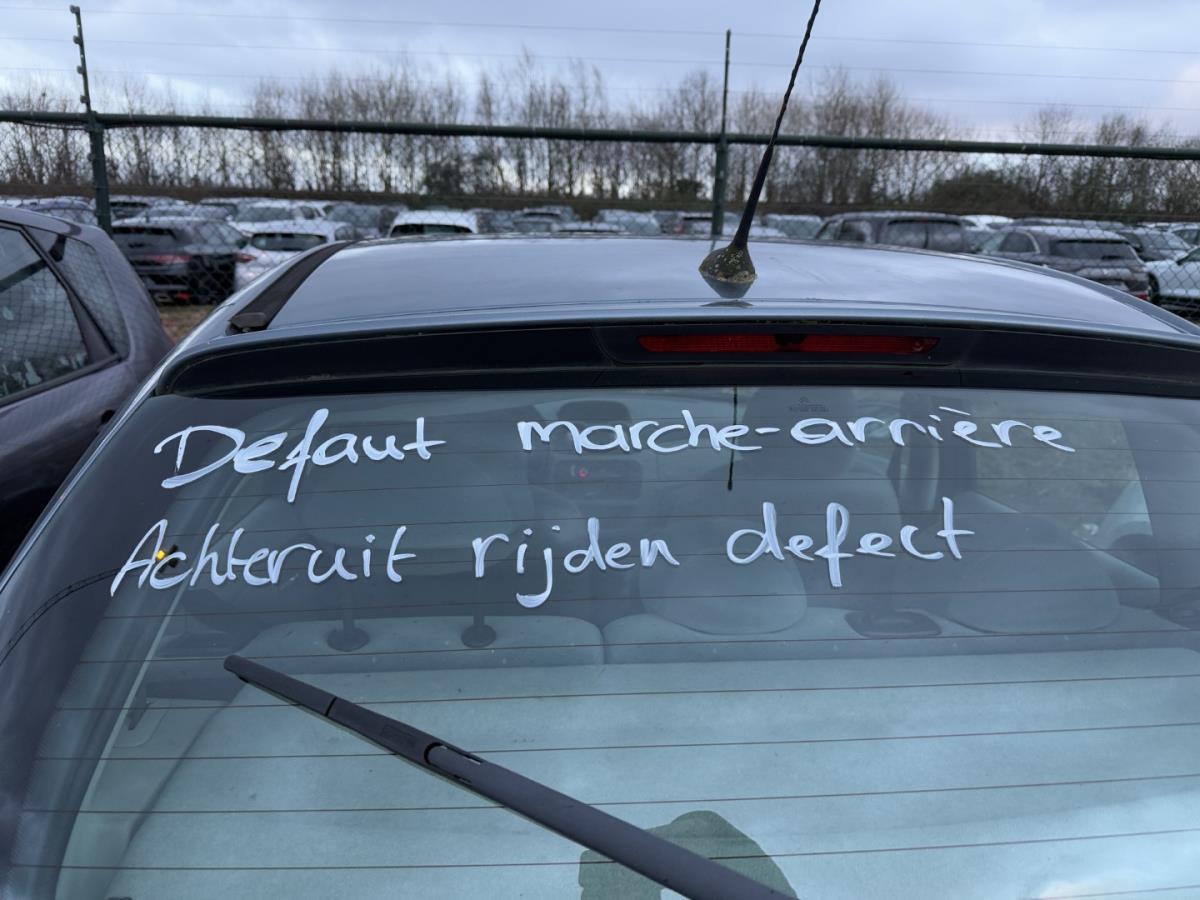 Defaut marche-arrière
Achteruit rijden defect